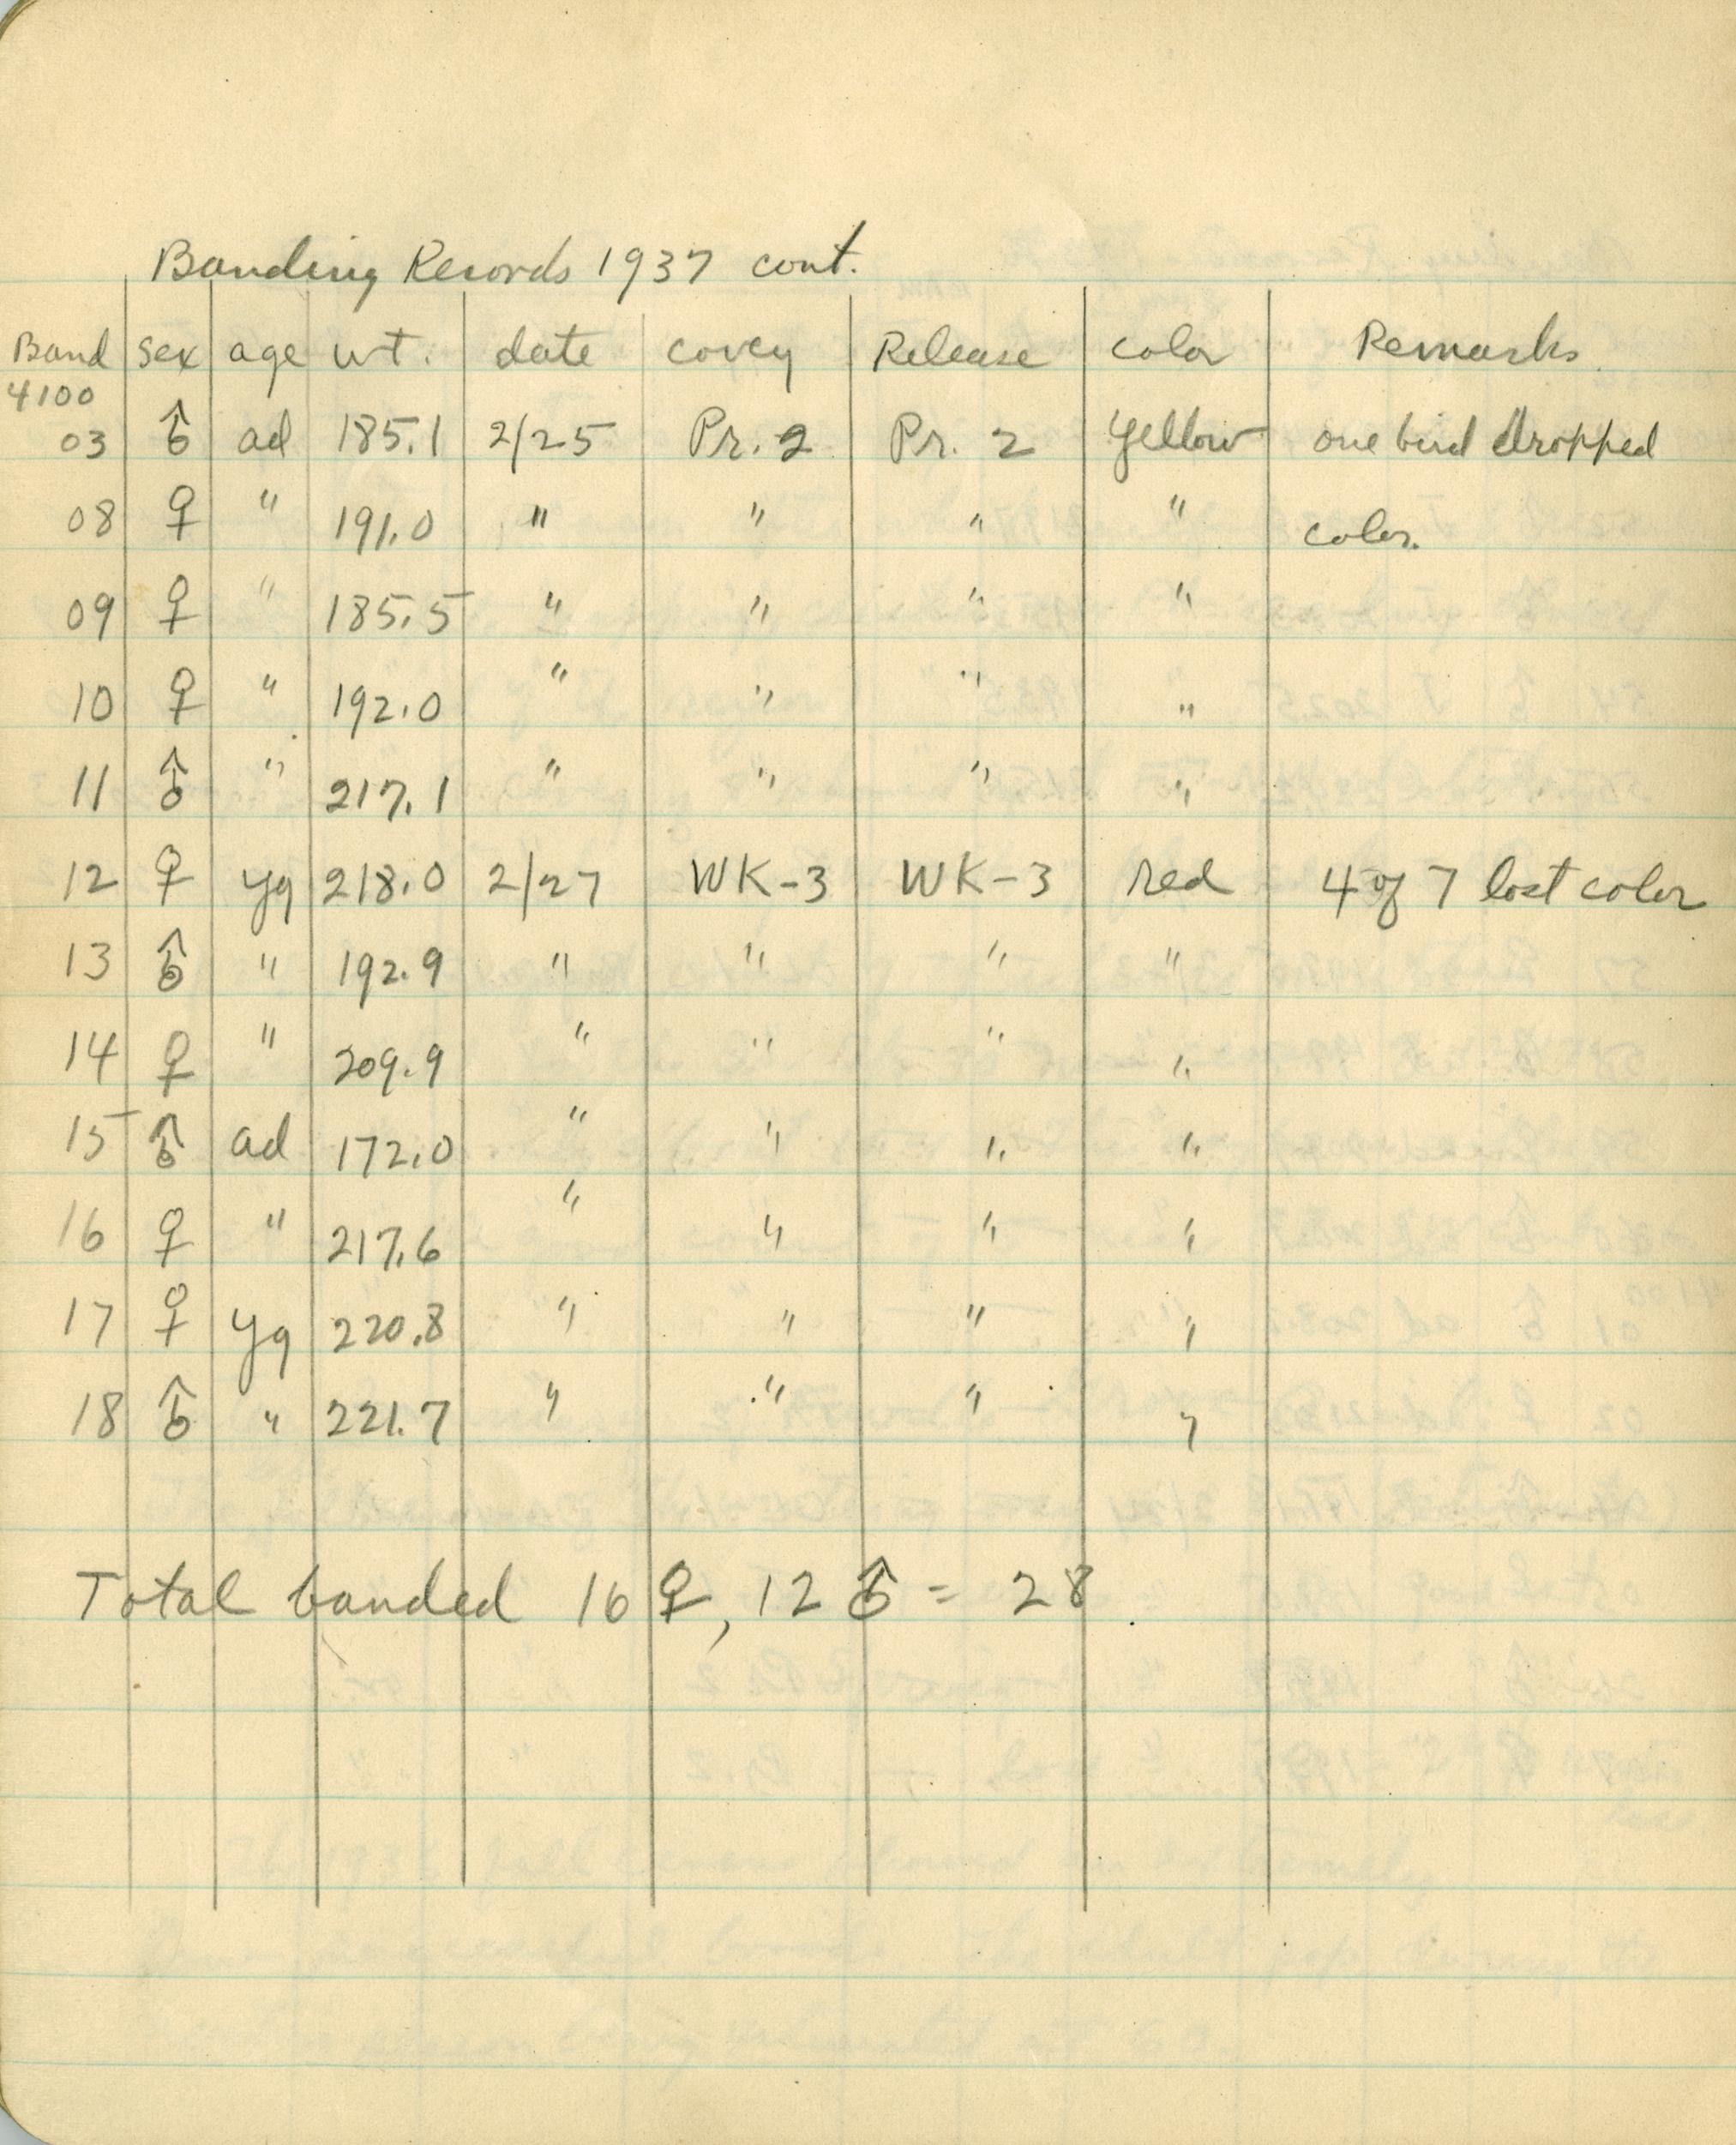 Banding Records 1937 cont.
Band sex age wt. date covey Release color Remarks
4100
03 ♂ ad 185.1 2/25 Pr. 2 Pr. 2 yellow one bird dropped
08 ♀ " 191.0 " " " " color.
09 ♀ " 185.5 " " " "
10 ♀ " 192.0 " " " "
11 ♂ " 217.1 " " " "
12 ♀ yg 218.0 2/27 WK-3 WK-3 red 4 of 7 lost color
13 ♂ " 192.9 " " " "
14 ♀ " 209.9 " " " "
15 ♂ ad 172.0 " " " "
16 ♀ " 217.6 " " " "
17 ♀ yg 220.8 " " " "
18 ♂ " 221.7 " " " "
Total banded 16 ♀, 12 ♂ = 28.